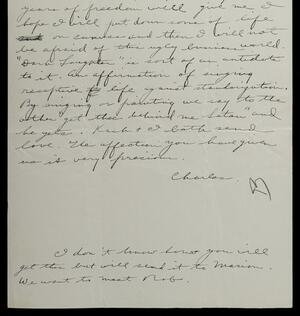 years of freedom will give me I
hope I will put down some of life
on canvass and then I will not
be afraid of this ugly business world.
"Dark Laughter" is sort of an antidote
to it. An affirmation of singing
receptive life against standardization.
By singing or painting we say to the
other "get thee behind me Satan" and
he gets. & I both send
love. The affection you have given
us is very precious.
Charles.
I don't know how you will
get this but will send it to Marion.
We want to meet Bob.